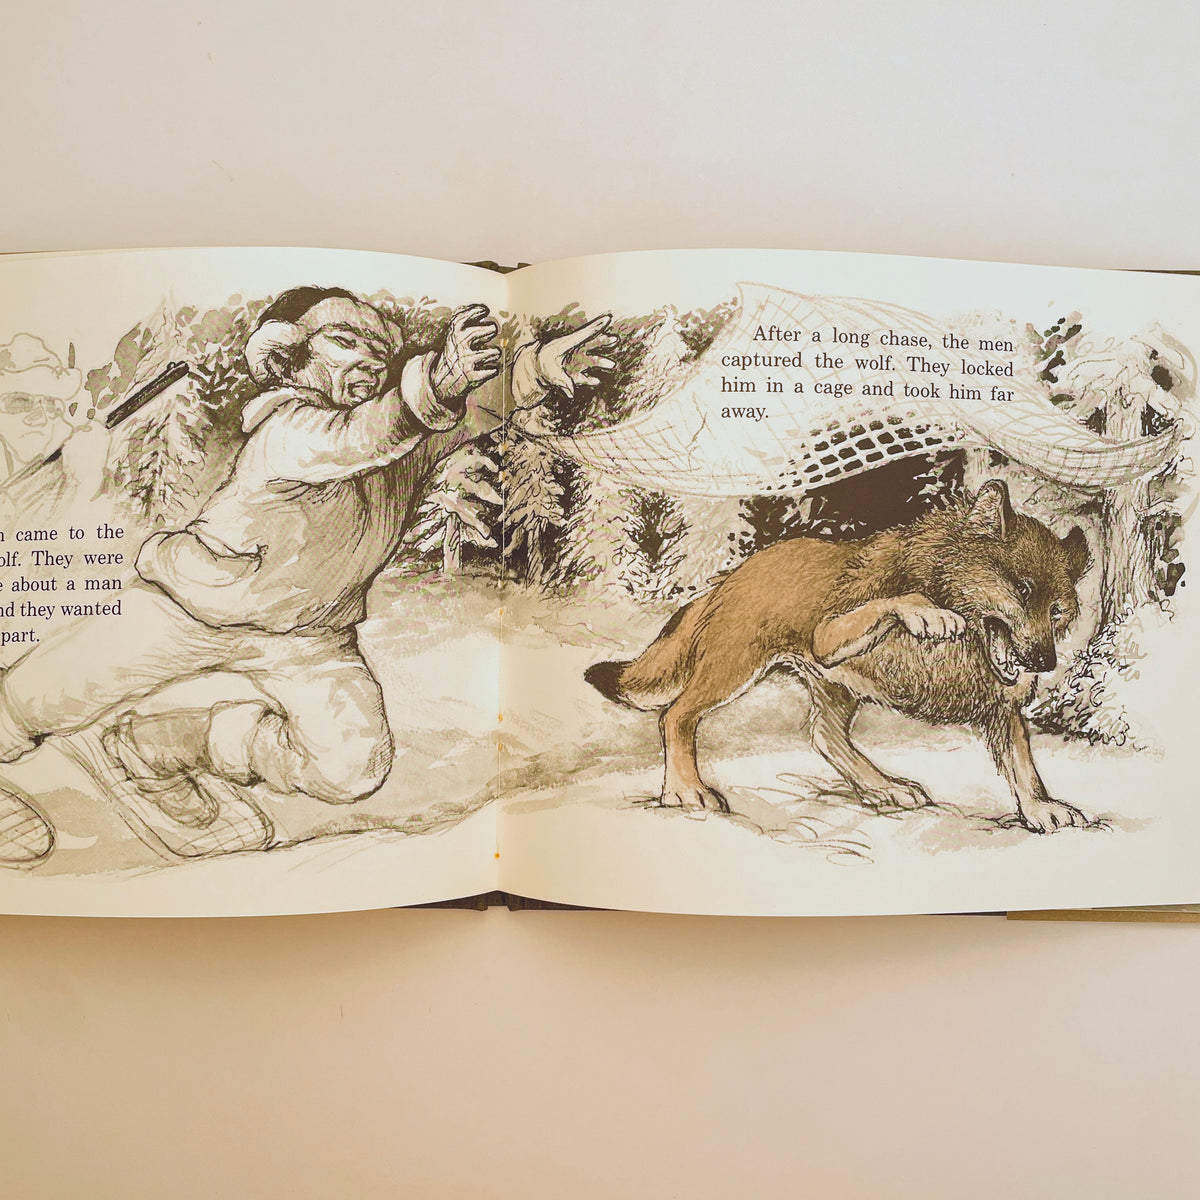 came to the
They were
about a man
they wanted
part.
After a long chase, the men
captured the wolf. They locked
him in a cage and took him far
away.